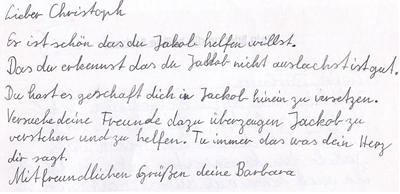 Lieber Christoph
Es ist schön das du Jakob helfen willst.
Das du erkennst das du Jackob nicht auslachst ist gut.
Du hast es geschaft dich in Jackob hinein zu versetzen.
Versuche deine Freunde dazu überzeugen Jackob zu
verstehen und zu helfen. Tu immer das was dein Herz
dir sagt.
Mit freundlichen Grüßen deine Barbara